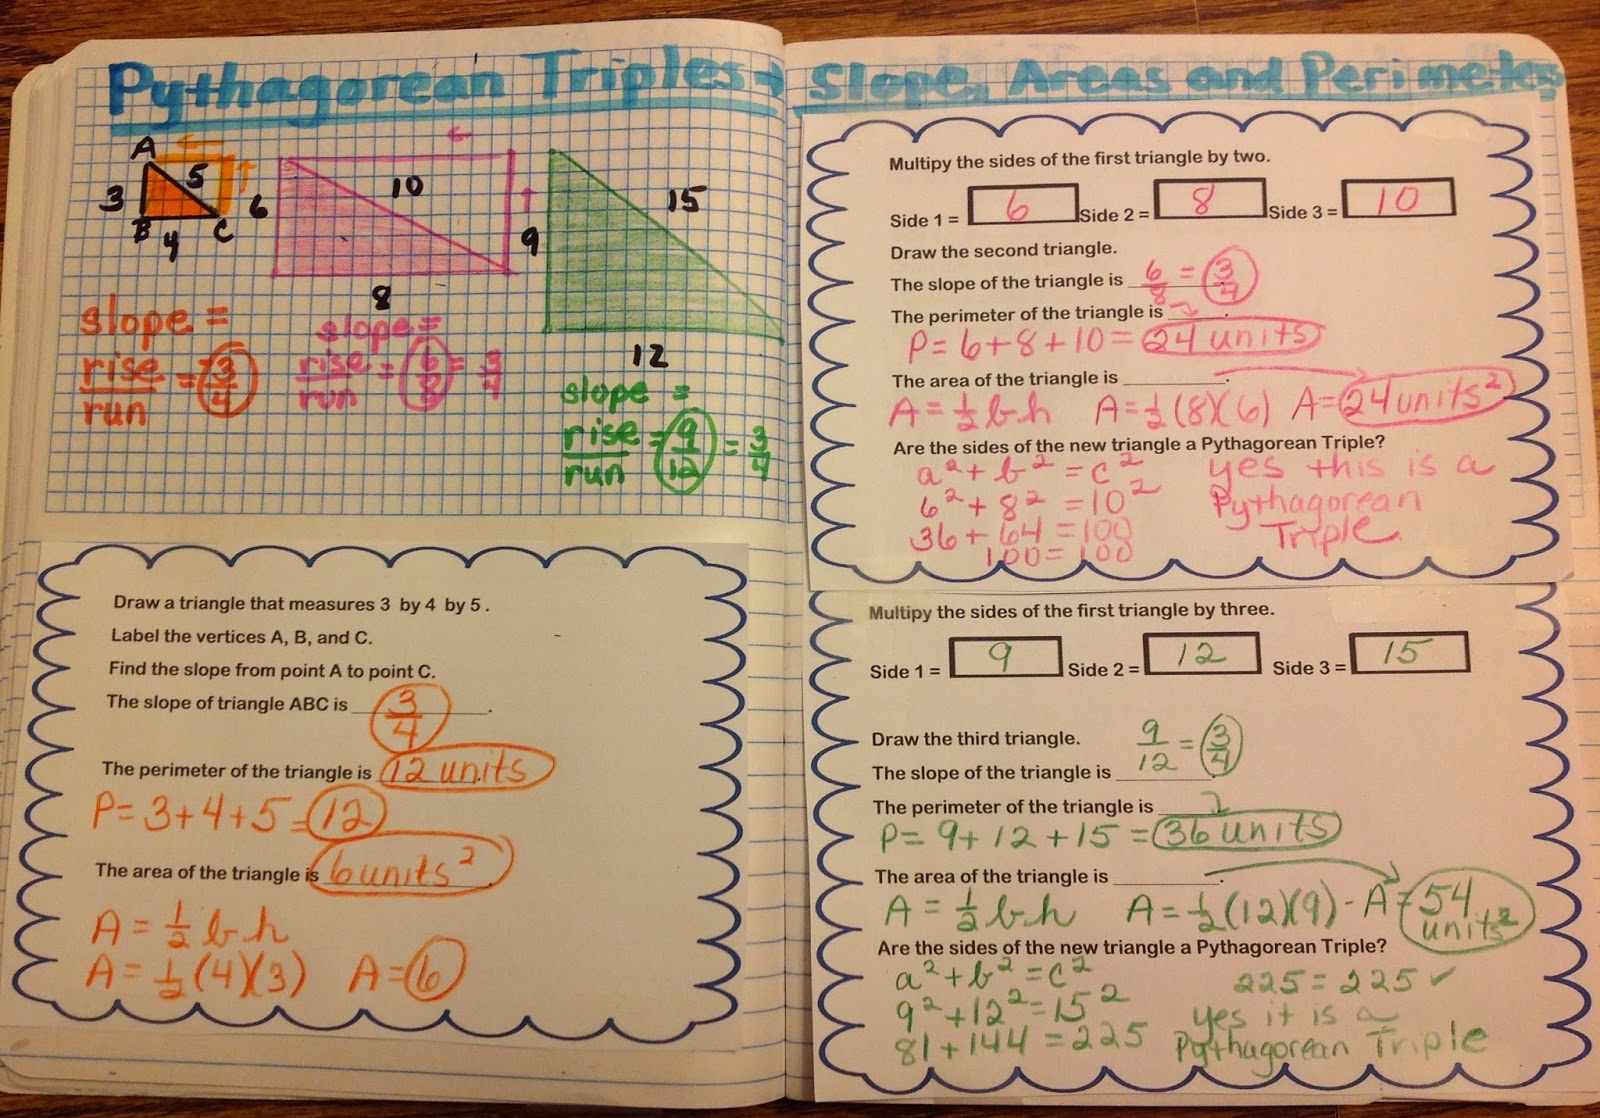 Pythagorean Triples +
A
5
3
B
4
C
6
10
8
15
9
12
slope =
rise/run = 3/4
slope =
rise/run = 6/8 = 3/4
slope =
rise/run = 9/12 = 3/4
Draw a triangle that measures 3 by 4 by 5 .
Label the vertices A, B, and C.
Find the slope from point A to point C.
The slope of triangle ABC is 3/4 .
The perimeter of the triangle is 12 units
P= 3+4+5 = 12
The area of the triangle is 6 units² .
A = ½ b h
A = ½ (4)(3) A = 6
Slope, Areas and Perimeters
Multipy the sides of the first triangle by two.
Side 1 = 6 Side 2 = 8 Side 3 = 10
Draw the second triangle.
The slope of the triangle is 6/8 = 3/4
The perimeter of the triangle is ______.
P= 6+8+10 = 24 units
The area of the triangle is __________.
A = ½ b h A = ½ (8)(6) A = 24 units²
Are the sides of the new triangle a Pythagorean Triple?
a² + b² = c² yes this is a
6² + 8² = 10² Pythagorean
36 + 64 = 100 Triple
100 = 100
Multipy the sides of the first triangle by three.
Side 1 = 9 Side 2 = 12 Side 3 = 15
Draw the third triangle.
The slope of the triangle is 9/12 = 3/4
The perimeter of the triangle is ______
P= 9+12+15 = 36 units
The area of the triangle is __________.
A = ½ b h A = ½ (12)(9) - A = 54 units²
Are the sides of the new triangle a Pythagorean Triple?
a² + b² = c² 225 = 225 ✓
9² + 12² = 15² yes it is a
81 + 144 = 225 Pythagorean Triple